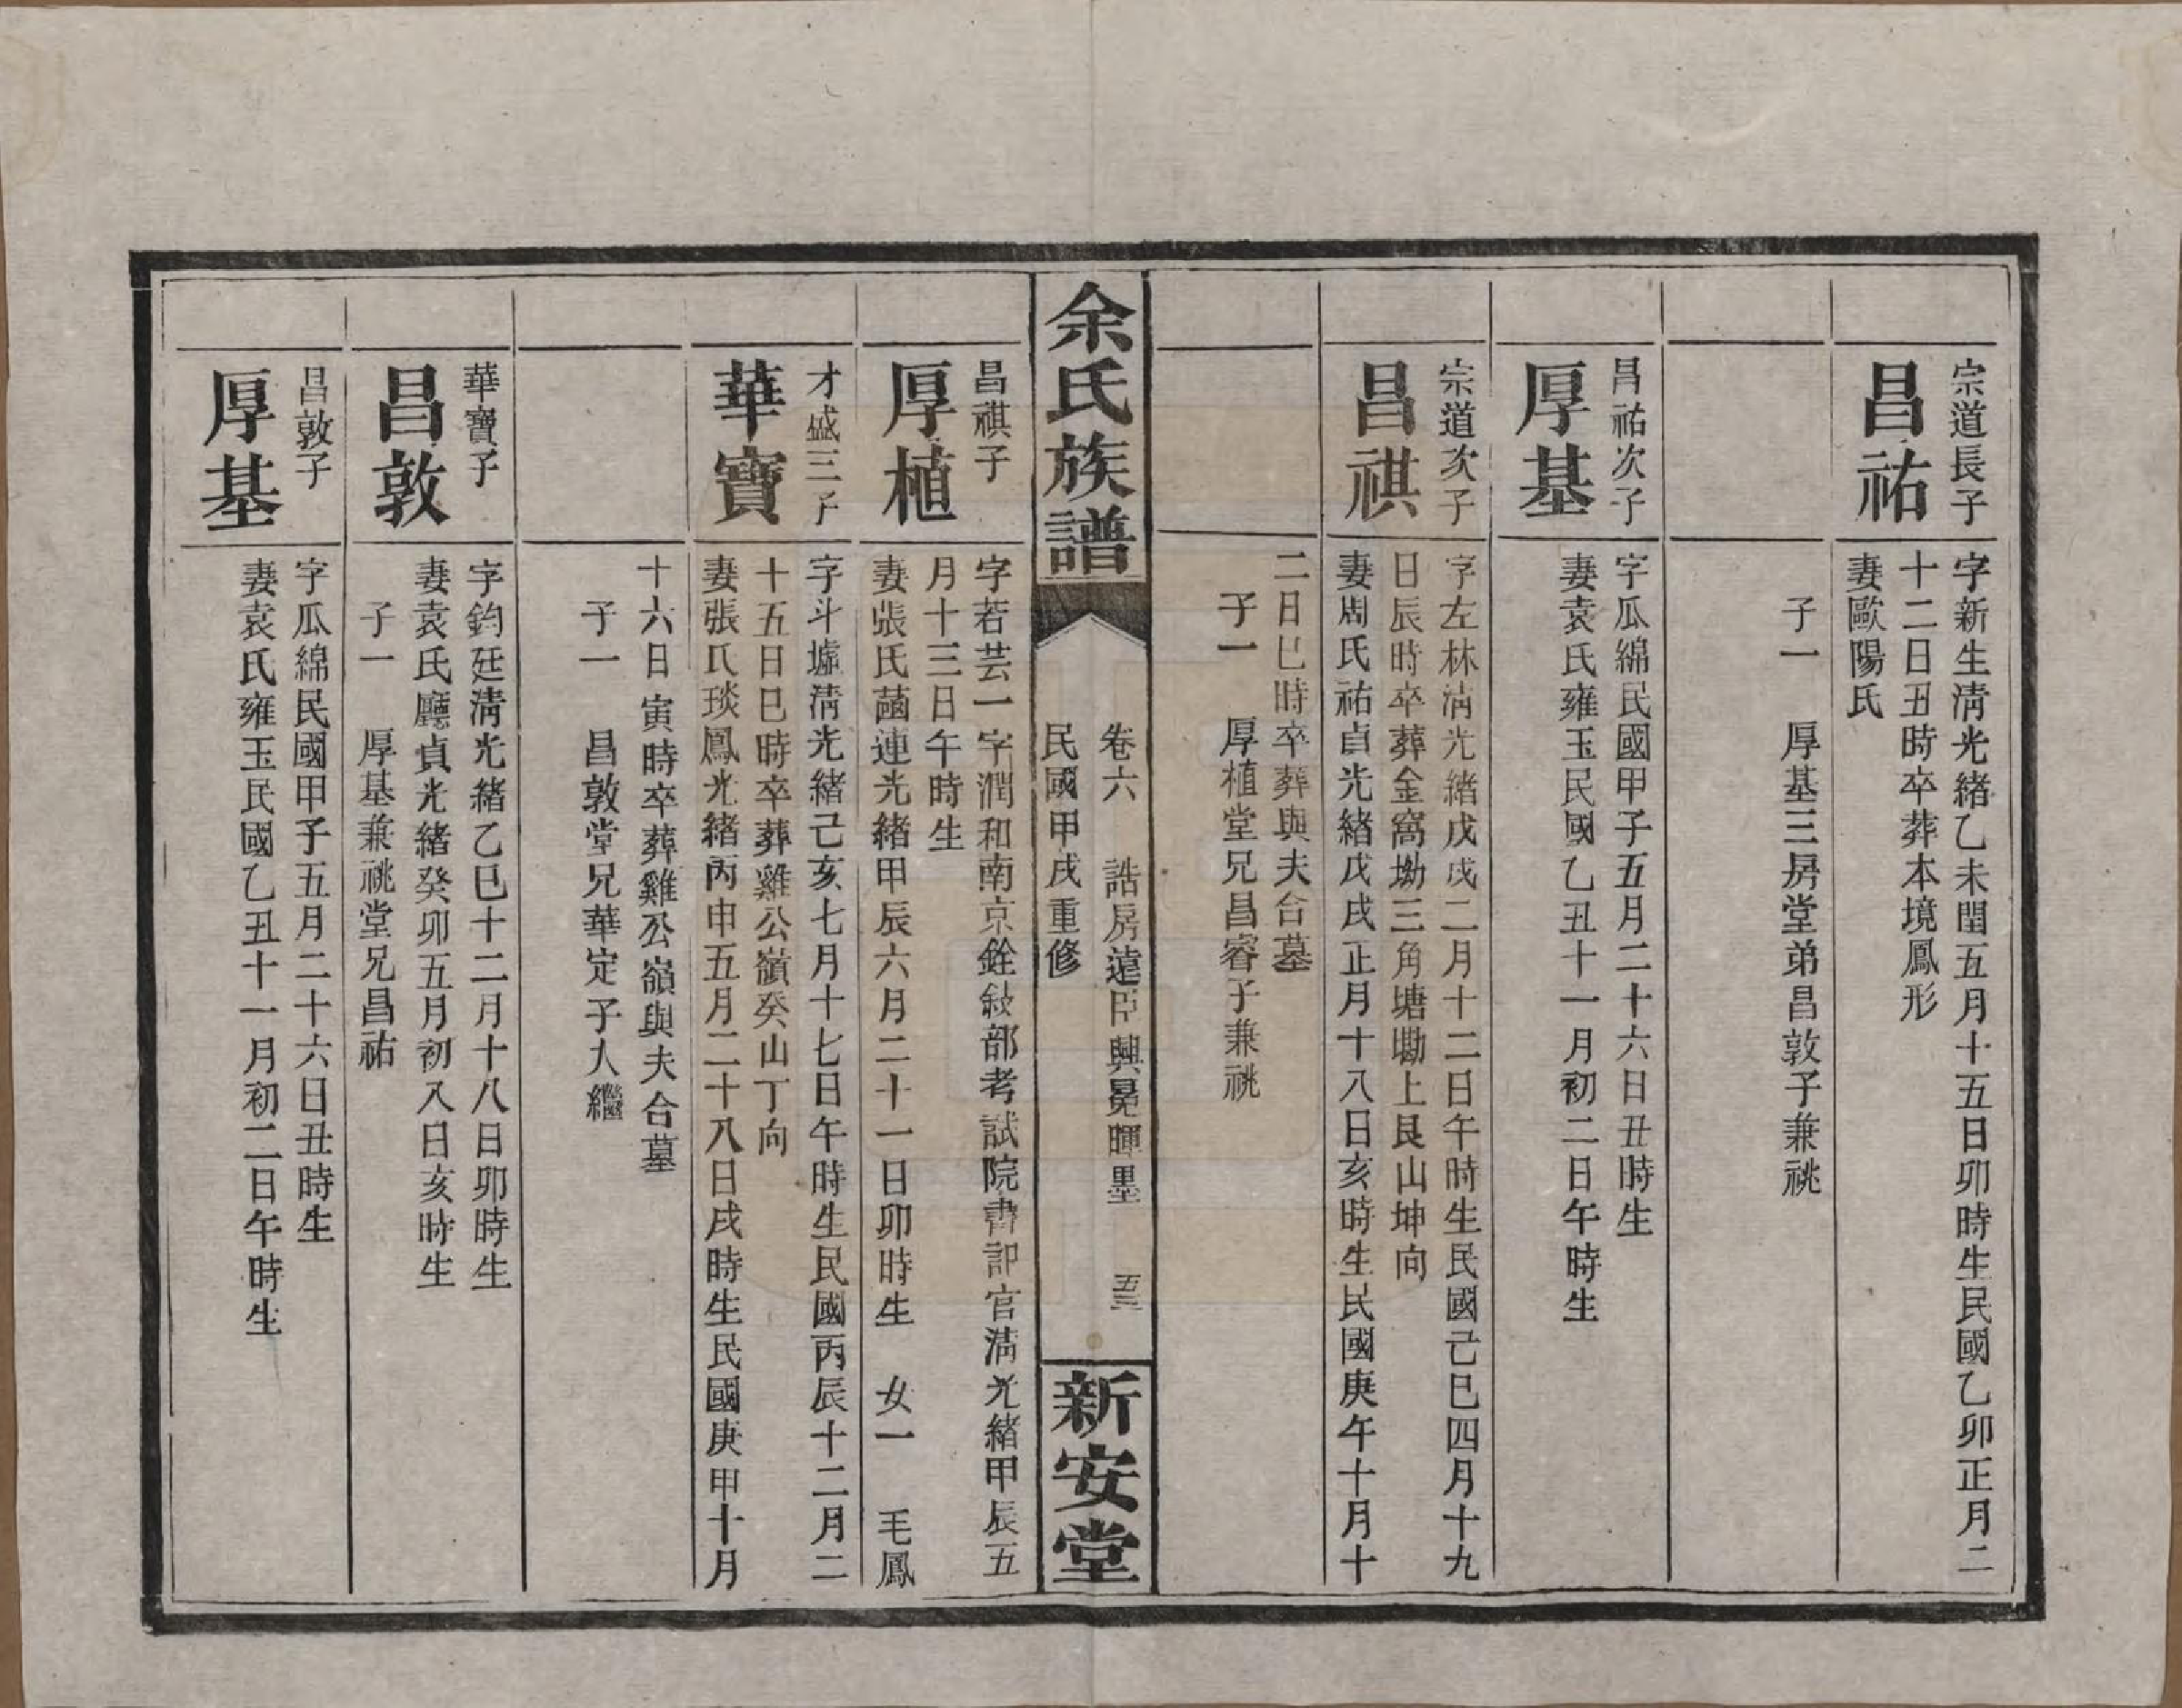 宗道長子
昌祐
字新生淸光緒乙未閏五月十五日卯時生民國乙卯正月二
十二日丑時卒葬本境鳳形
妻歐陽氏
子一　厚基三房堂弟昌敦子兼祧
昌祐次子
厚基
字瓜綿民國甲子五月二十六日丑時生
妻袁氏雍玉民國乙丑十一月初二日午時生
宗道次子
昌祺
字左林淸光緒戊戌二月十二日午時生民國己巳四月十九
日辰時卒葬金窩坳三角塘墈上艮山坤向
妻周氏祐貞光緒戊戌正月十八日亥時生民國庚午十月十
二日巳時卒葬與夫合墓
子一　厚植堂兄昌睿子兼祧
余氏族譜
卷六　誥房遠臣興晃暉墨　五三
民國甲戌重修
新安堂
昌祺子
厚植
字若芸一字潤和南京銓敍部考試院書記官淸光緒甲辰五
月十三日午時生
妻張氏菡連光緒甲辰六月二十一日卯時生　女一　毛鳳
才盛三子
華寶
字斗墟淸光緒己亥七月十七日午時生民國丙辰十二月二
十五日巳時卒葬雞公嶺癸山丁向
妻張氏琰鳳光緒丙申五月二十八日戌時生民國庚申十月
十六日寅時卒葬雞公嶺與夫合墓
子一　昌敦堂兄華定子入繼
華寶子
昌敦
字鈞廷淸光緒乙巳十二月十八日卯時生
妻袁氏廳貞光緒癸卯五月初八日亥時生
子一　厚基兼祧堂兄昌祐
昌敦子
厚基
字瓜綿民國甲子五月二十六日丑時生
妻袁氏雍玉民國乙丑十一月初二日午時生